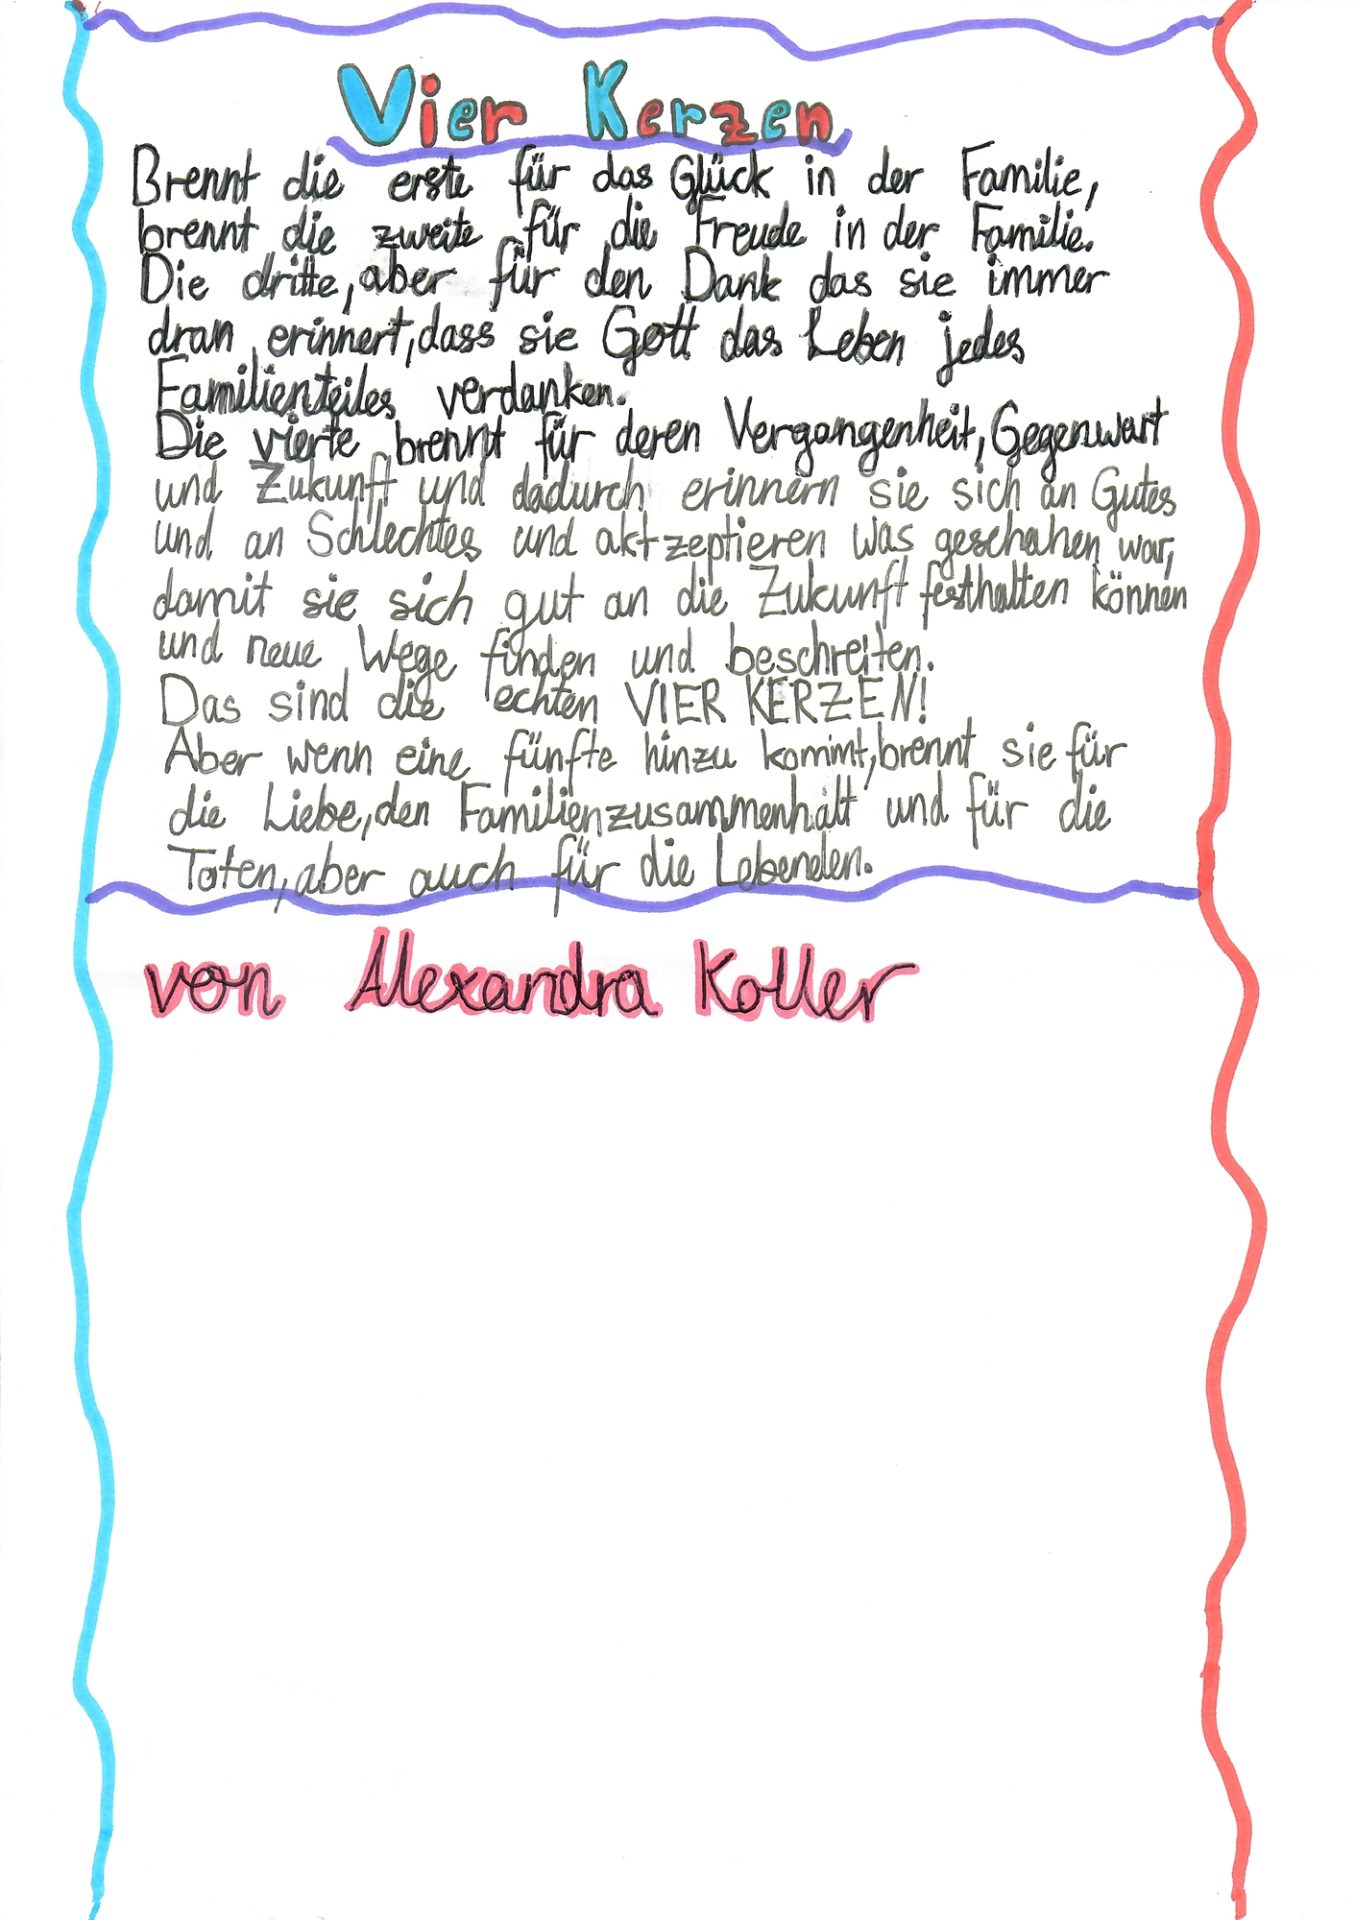 Vier Kerzen
Brennt die erste für das Glück in der Familie,
brennt die zweite für die Freude in der Familie.
Die dritte, aber für den Dank das sie immer
dran erinnert, dass sie Gott das Leben jedes
Familienteiles verdanken.
Die vierte brennt für deren Vergangenheit, Gegenwart
und Zukunft und dadurch erinnern sie sich an Gutes
und an Schlechtes und aktzeptieren was geschahen war,
damit sie sich gut an die Zukunft festhalten können
und neue Wege finden und beschreiten.
Das sind die echten VIER KERZEN!
Aber wenn eine fünfte hinzu kommt, brennt sie für
die Liebe, den Familienzusammenhalt und für die
Toten, aber auch für die Lebenden.
von Alexandra Koller